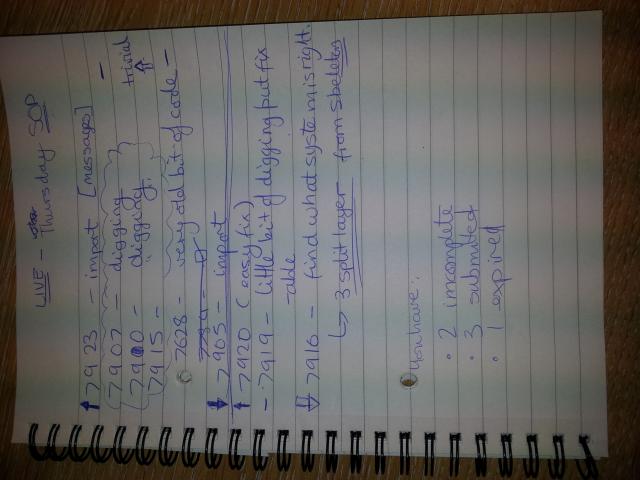 LIVE - Thursday SOP
↑ 7923 - import [messages] -
(7907 - digging
(7900 - digging } trivial
(7915 -
7628 - very old bit of code -
↓ 7905 - import
↑ 7920 (easy fix)
- 7919 - little bit of digging but fix
- able
⇓ 7916 - find what system is right.
↳ 3 split layer from skeleton
You have:
• 2 incomplete
• 3 submitted
• 1 expired